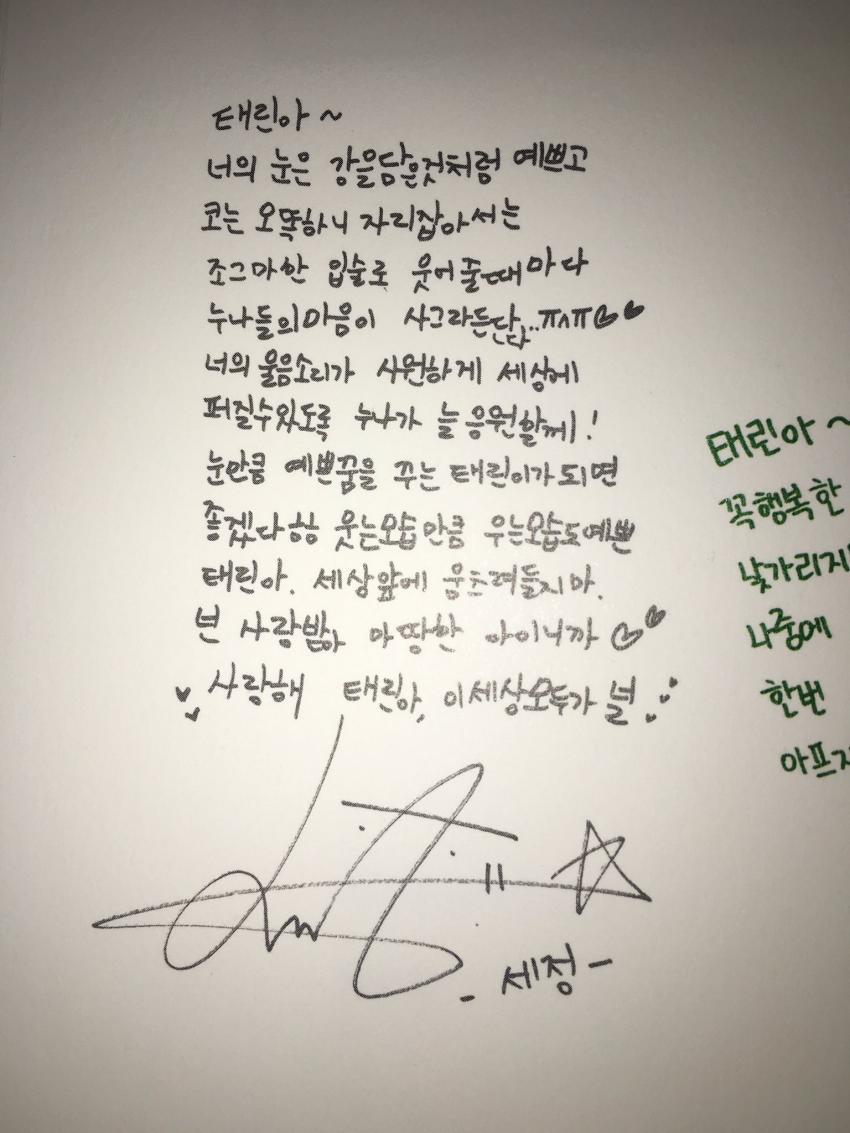 태린아~
너의 눈은 강을담은것처럼 예쁘고
코는 오똑하니 자리잡아서는
조그마한 입술로 웃어줄때마다
누나들의마음이 사그라든단다..ㅠㅅㅠ♡♥
너의울음소리가 시원하게 세상에
퍼질수있도록 누나가 늘 응원할께!
눈만큼 예쁜꿈을 꾸는 태린이가되면
좋겠다하핳 웃는모습만큼 우는모습도예쁜
태린아. 세상앞에 움츠려들지마.
넌 사랑받아 마땅한 아이니까♡♥
사랑해 태린아, 이세상모두가 널
- 세정-
태린아~
꼭행복한
낯가리지
나중에
한번
아프지